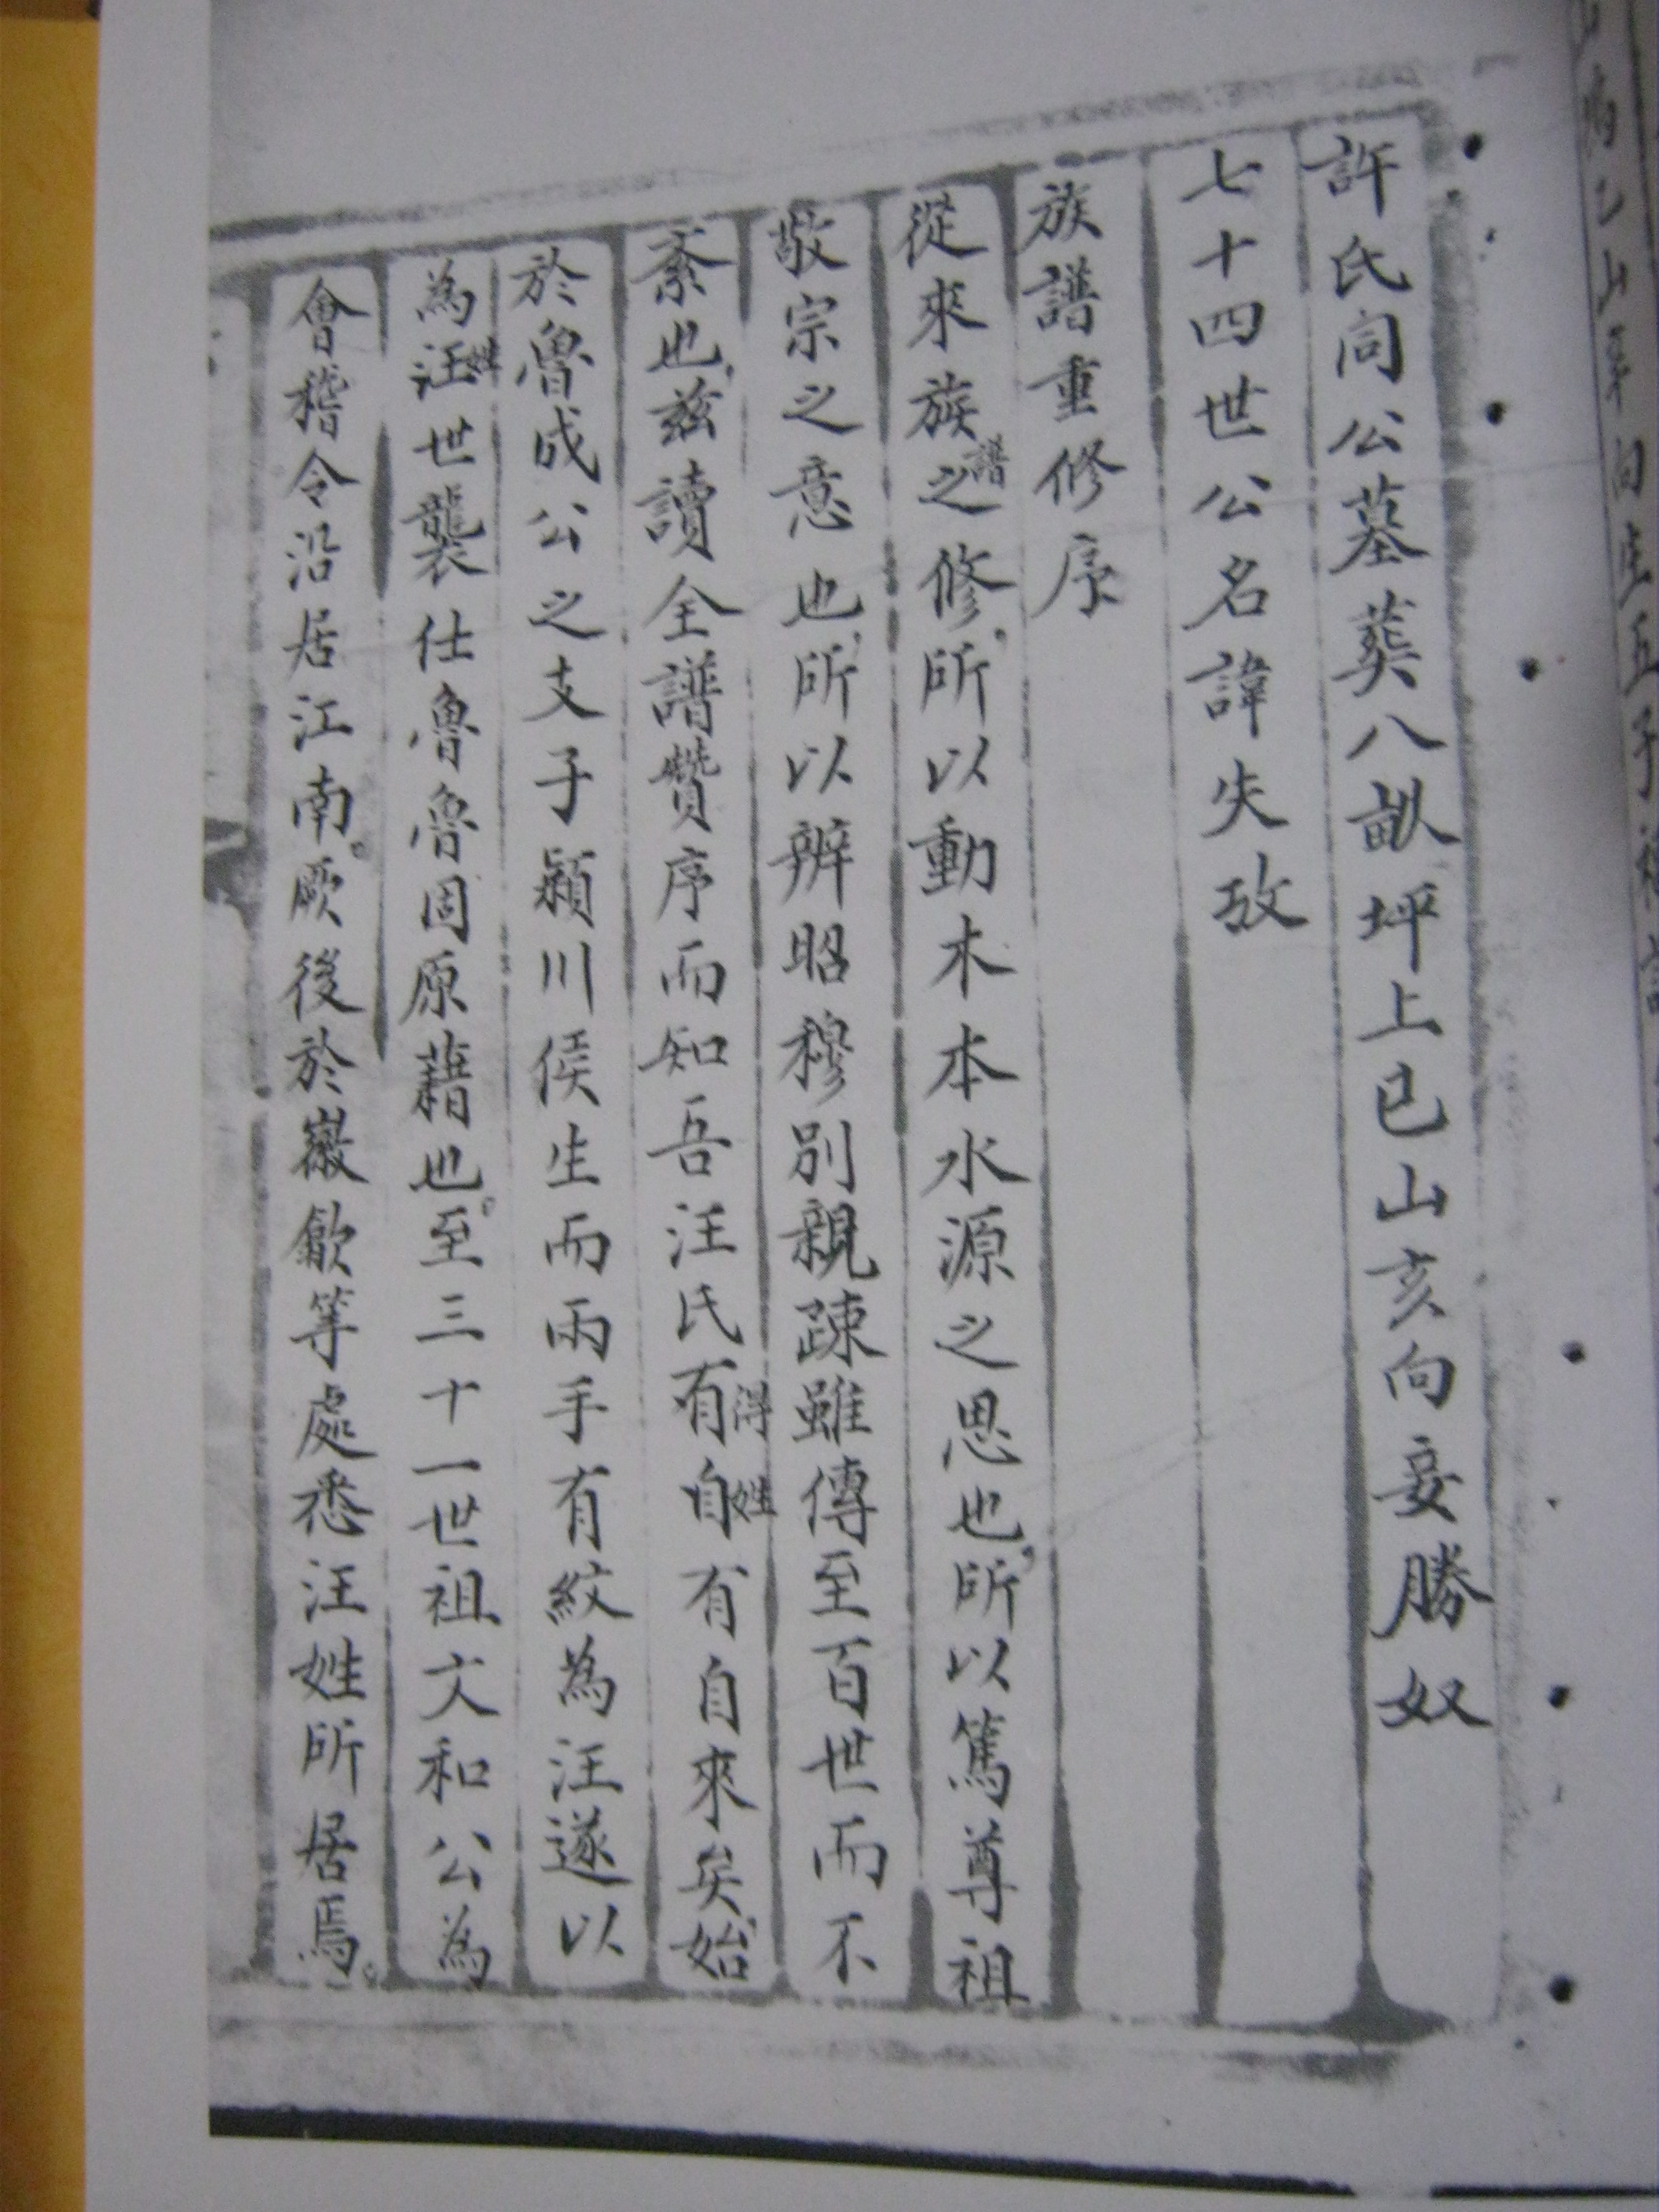 許氏同公墓葬八畝坪上巳山亥向妾勝奴
七十四世公名諱失攷
族譜重修序
從來族譜之修所以動木本水源之思也所以篤尊祖
敬宗之意也所以辨昭穆別親疎雖傳至百世而不
紊也茲讀全譜贊序而知吾汪氏有得自姓有自來矣始
於魯成公之支子潁川侯生而兩手有紋為汪遂以
為汪姓世襲仕魯魯固原藉也至三十一世祖文和公為
會稽令沿居江南厥後於徽歙等處悉汪姓所居焉